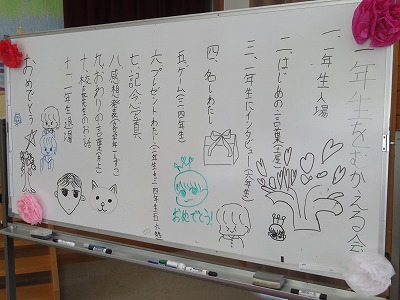 一年生をむかえる会
一、一年生入場
二、はじめの言葉
三、一年生にインタビュー(六年生)
四、名しわたし
五、ゲーム(三・四年生)
六、プレゼントわたし
七、記念写真
八、感想発表
九、おわりの言葉
十、校長先生のお話
十一、一年生退場
おめでとう
おめでとう!